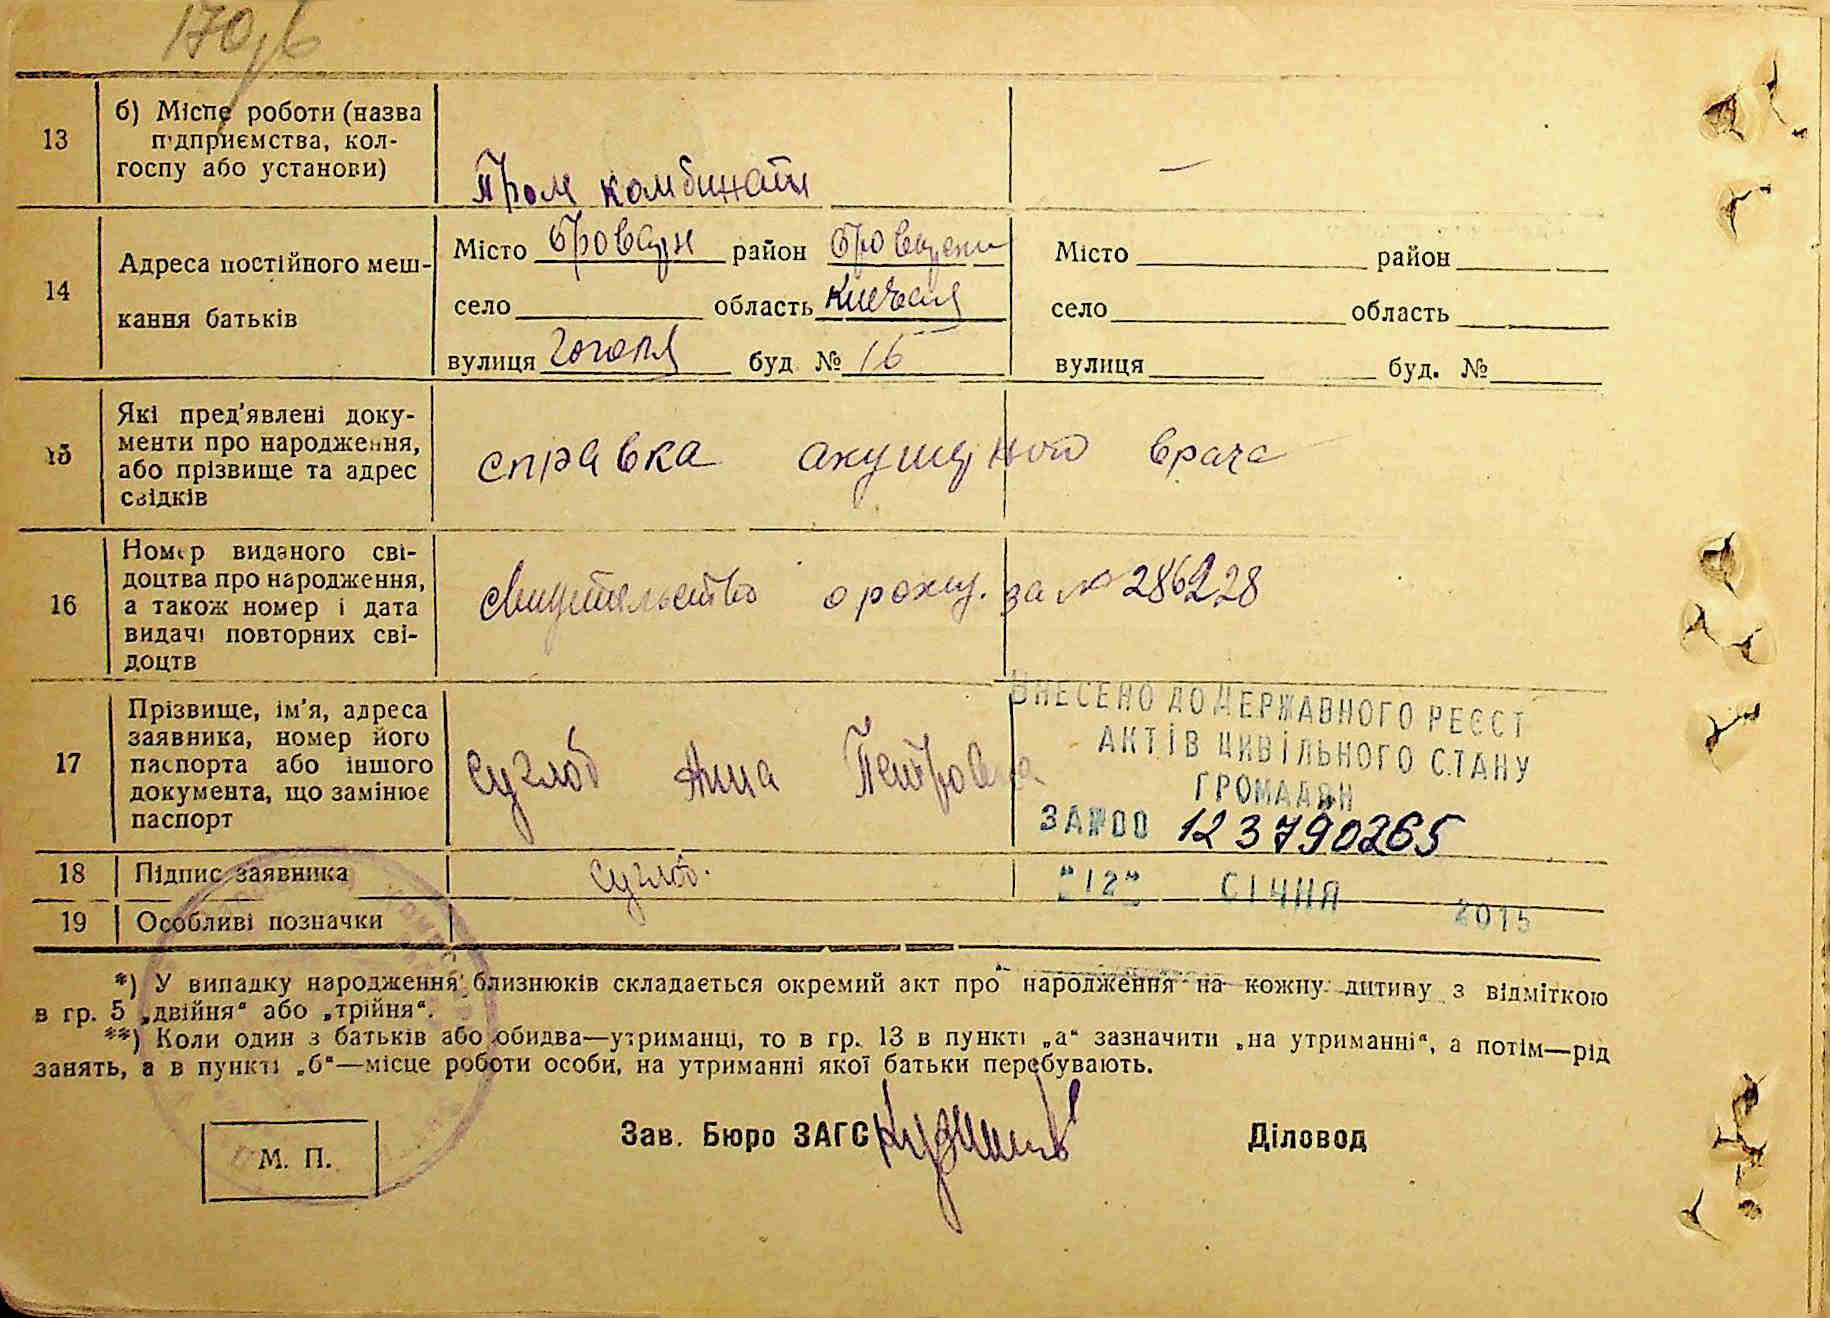 170/б
13
б) Місце роботи (назва
підприємства, кол-
госпу або установи)
Пром комбинат
—
14
Адреса постійного меш-
кання батьків
Місто Бровары район Бровцеки
село область Киевская
вулиця Гоголя буд № 16
Місто район
село область
вулиця буд. №
15
Які пред'явлені доку-
менти про народження,
або прізвище та адрес
свідків
справка врача
16
Номер виданого сві-
доцтва про народження,
а також номер і дата
видачі повторних сві-
доцтв
свидетельство о рожд. за № 286228
17
Прізвище, ім'я, адреса
заявника, номер його
паспорта або іншого
документа, що замінює
паспорт
Суглоб Анна Петровна
ВНЕСЕНО ДО ДЕРЖАВНОГО РЕЄСТ
АКТІВ ЦИВІЛЬНОГО СТАНУ
ГРОМАДЯН
ЗА №00 123790265
"12" СІЧНЯ 2015
18
Підпис заявника
Суглоб.
19
Особливі позначки
*) У випадку народження близнюків складається окремий акт про народження на кожну дитину з відміткою
в гр. 5 „двійня“ або „трійня“.
**) Коли один з батьків або обидва—утриманці, то в гр. 13 в пункті „а“ зазначити „на утриманні“, а потім—рід
занять, а в пункті „б“—місце роботи особи, на утриманні якої батьки перебувають.
Зав. Бюро ЗАГС
Діловод
М. П.